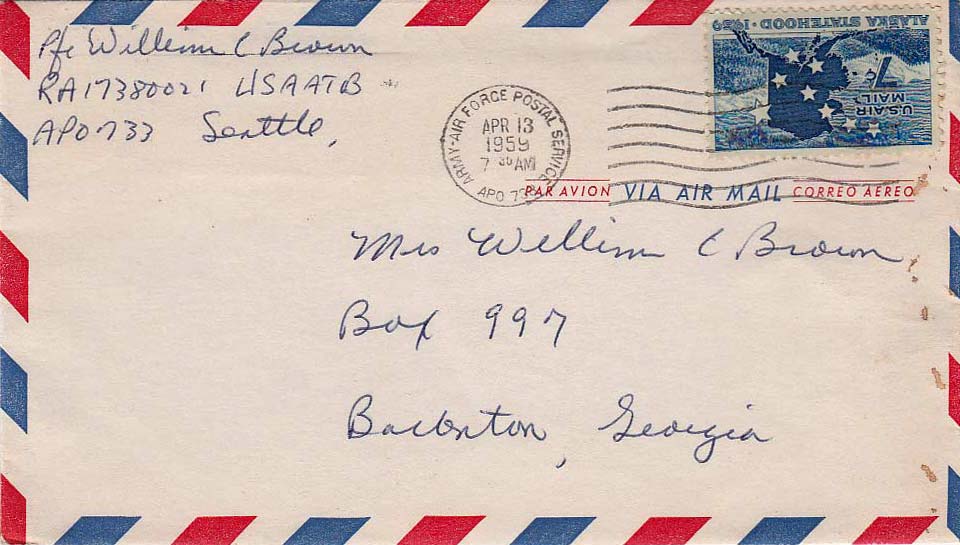 Pfc William C Brown
RA17380021 USAATB
APO 733 Seattle,
ARMY-AIR FORCE POSTAL SERVICE
APR 13
1959
7 30 AM
APO 733
ALASKA STATEHOOD · 1959
7¢
U.S. AIR MAIL
PAR AVION VIA AIR MAIL CORREO AEREO
Mrs William C Brown
Box 997
Georgia